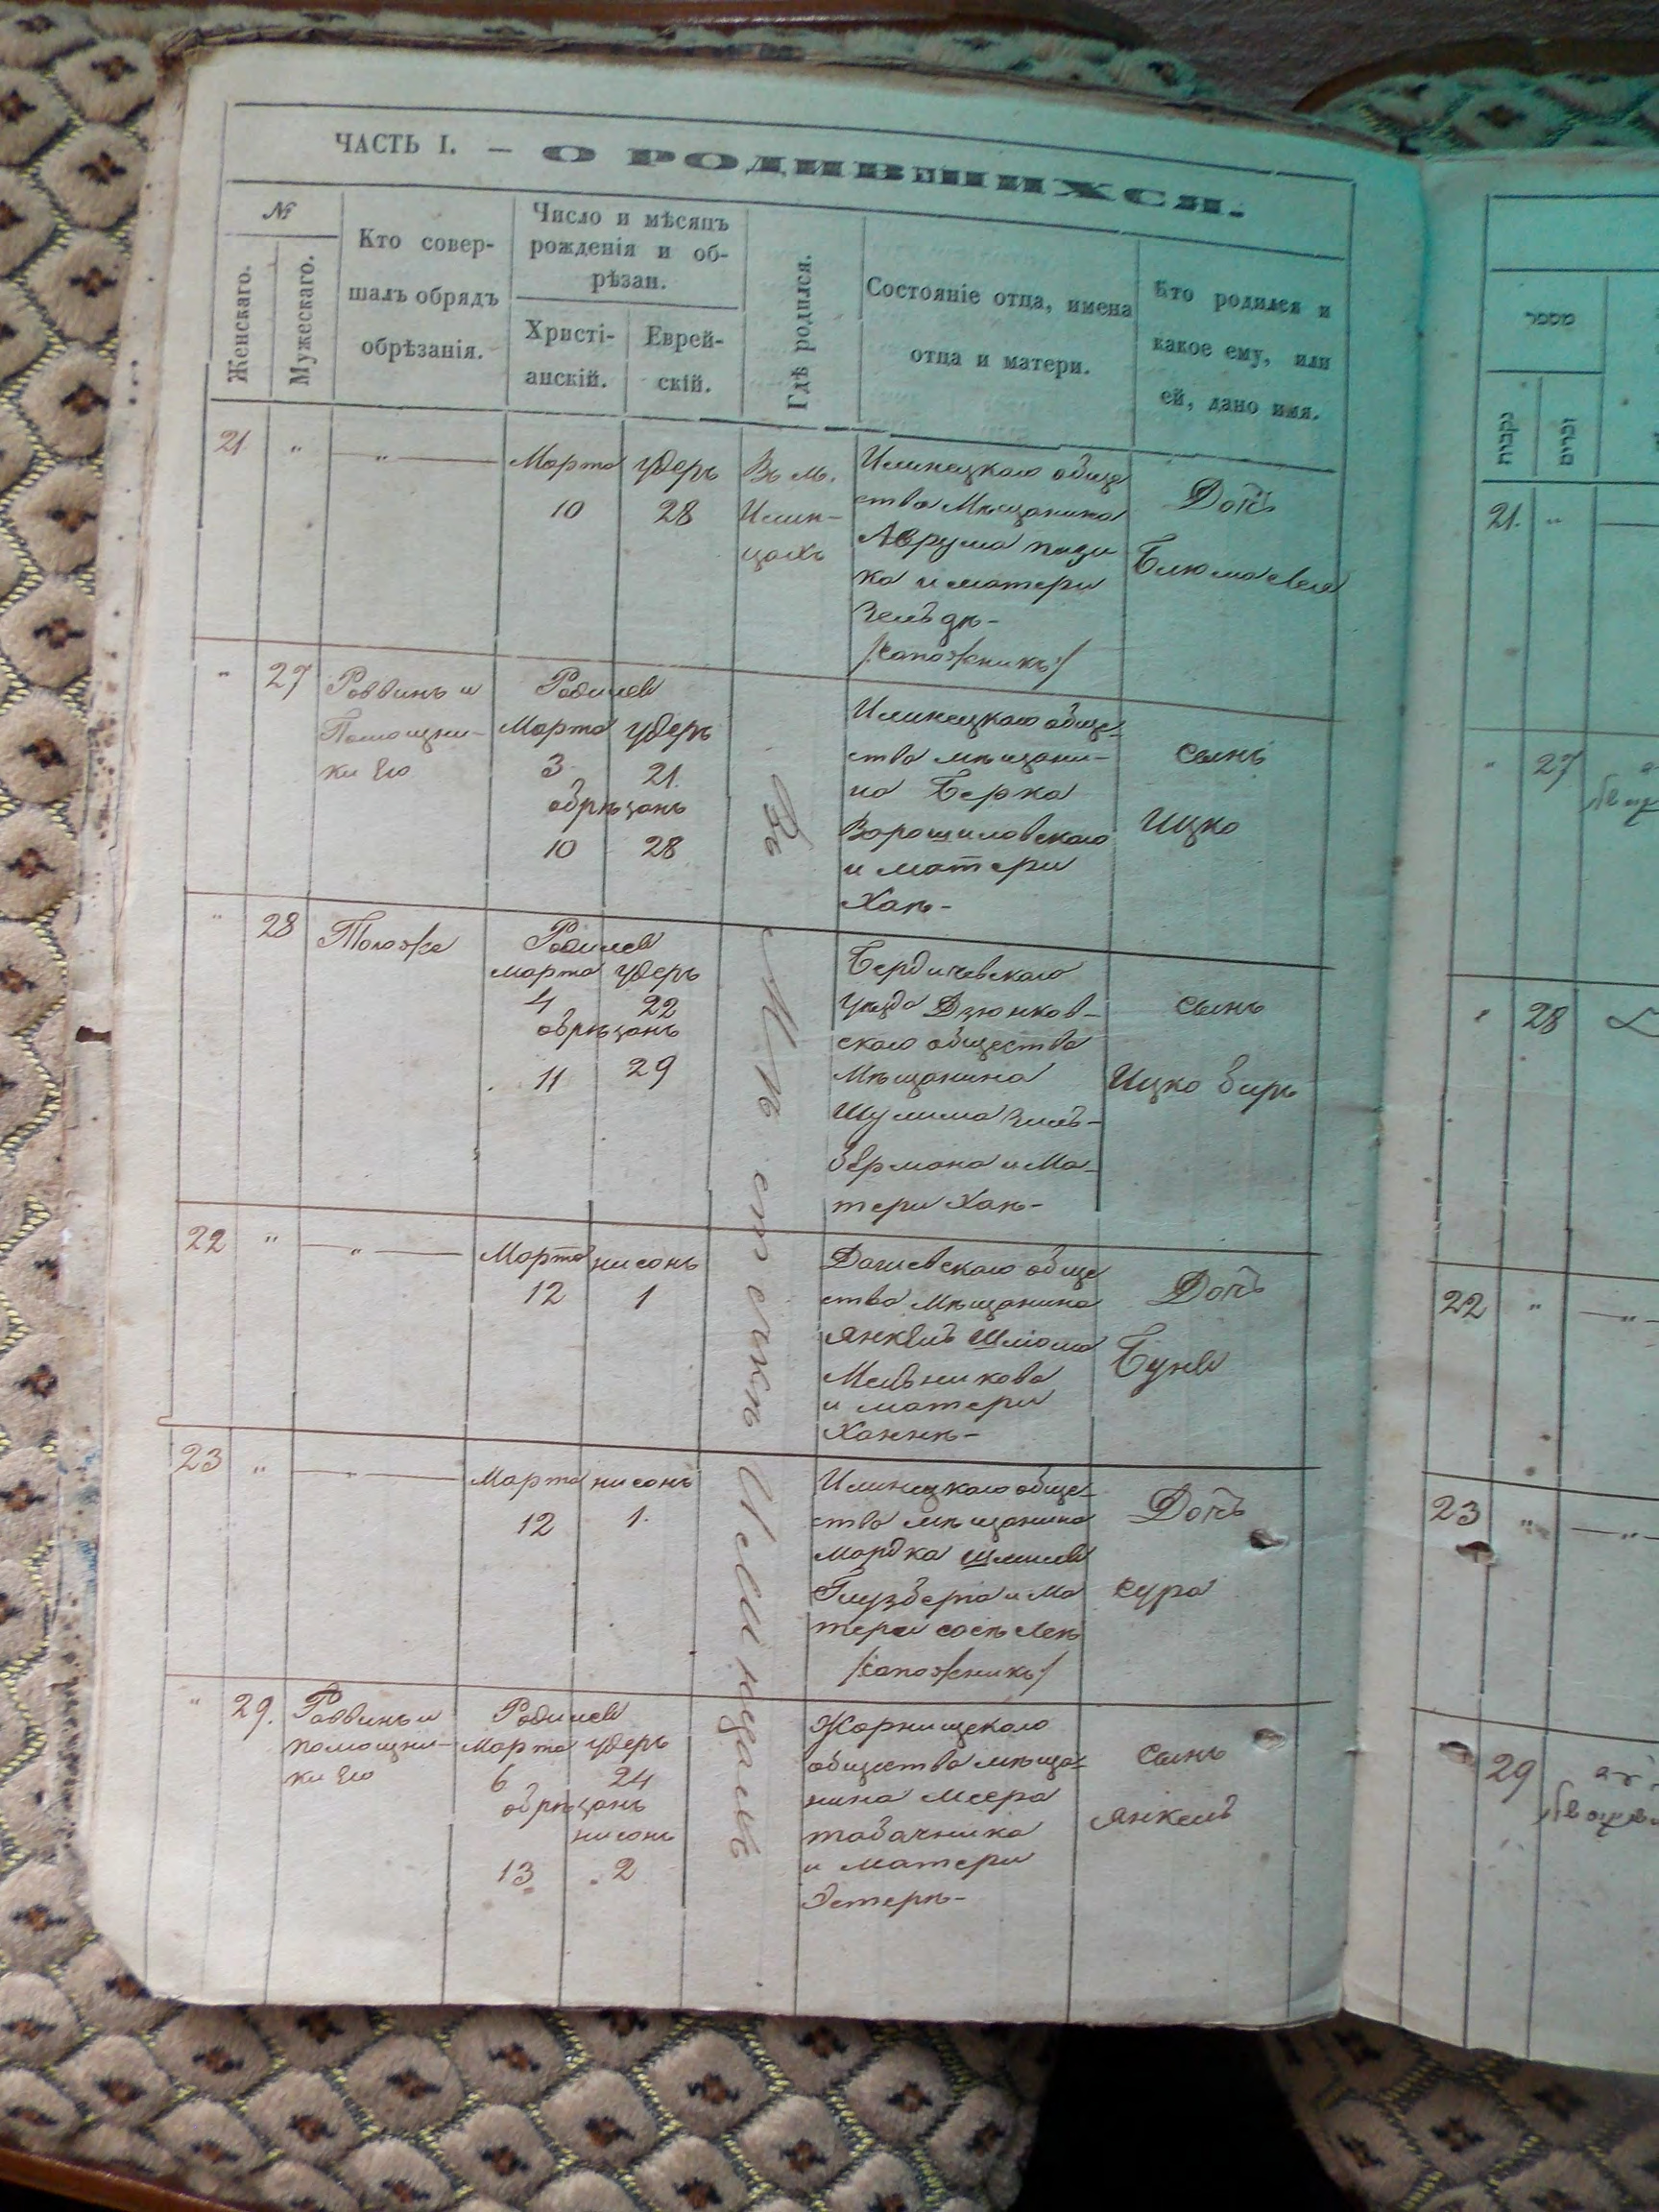 ЧАСТЬ I. — О РОДИВШИХСЯ.
№
Женскаго.
Мужескаго.
Кто совер-
шалъ обрядъ
обрѣзанія.
Число и мѣсяцъ
рожденія и об-
рѣзан.
Христі-
анскій.
Еврей-
скій.
Гдѣ родился.
Состояніе отца, имена
отца и матери.
Кто родился и
какое ему, или
ей, дано имя.
21 " — " —
Марта
10
удеръ
28
Въ м.
Илин-
цахъ
Илинецкаго обще
ства Мѣщанина
Аврума
ка и матери
Зельдѣ-
/:сапожникъ:/
Дочь
Блюма
" 27
Раввинъ и
Помощни-
ки Его
Родился
Марта удеръ
3 21.
обрѣзанъ
10 28
Илинецкаго обще-
ства мѣщани-
на Берка
Ворошиловскаго
и матери
Хаѣ-
сынъ
Ицко
" 28
Тоже
Родился
марта удеръ
4 22
обрѣзанъ
11 29
Бердичевскаго
уѣзда Дзюнков-
скаго общества
Мѣщанина
Шулима Зиль-
бермана и Ма-
тери Хаѣ-
сынъ
Ицко Беръ
22 " — " —
Марта нисонъ
12 1
Дашевскаго обще
ства Мѣщанина
Янкель Шлiома
Мельникова
и матери
Ханнѣ-
Дочь
Буня
23 " — " —
Марта нисонъ
12 1.
Илинецкаго обще-
ства мѣщанина
мордка Шмиля
Глузберга и Ма
тери
/:сапожникъ:/
Дочь
сура
" 29.
Раввинъ и
помощни-
ки Его
Родился
Марта удеръ
6 24
обрѣзанъ
нисонъ
13 2
Жорнищскаго
общества мѣща-
нина меера
табачника
и матери
Эстерѣ-
сынъ
Янкель
Въ Мѣстечкѣ Илинцахъ
מספר
נקבות
זכרים
21. "
" 27
" 28
22 " — " —
23 " — " —
29